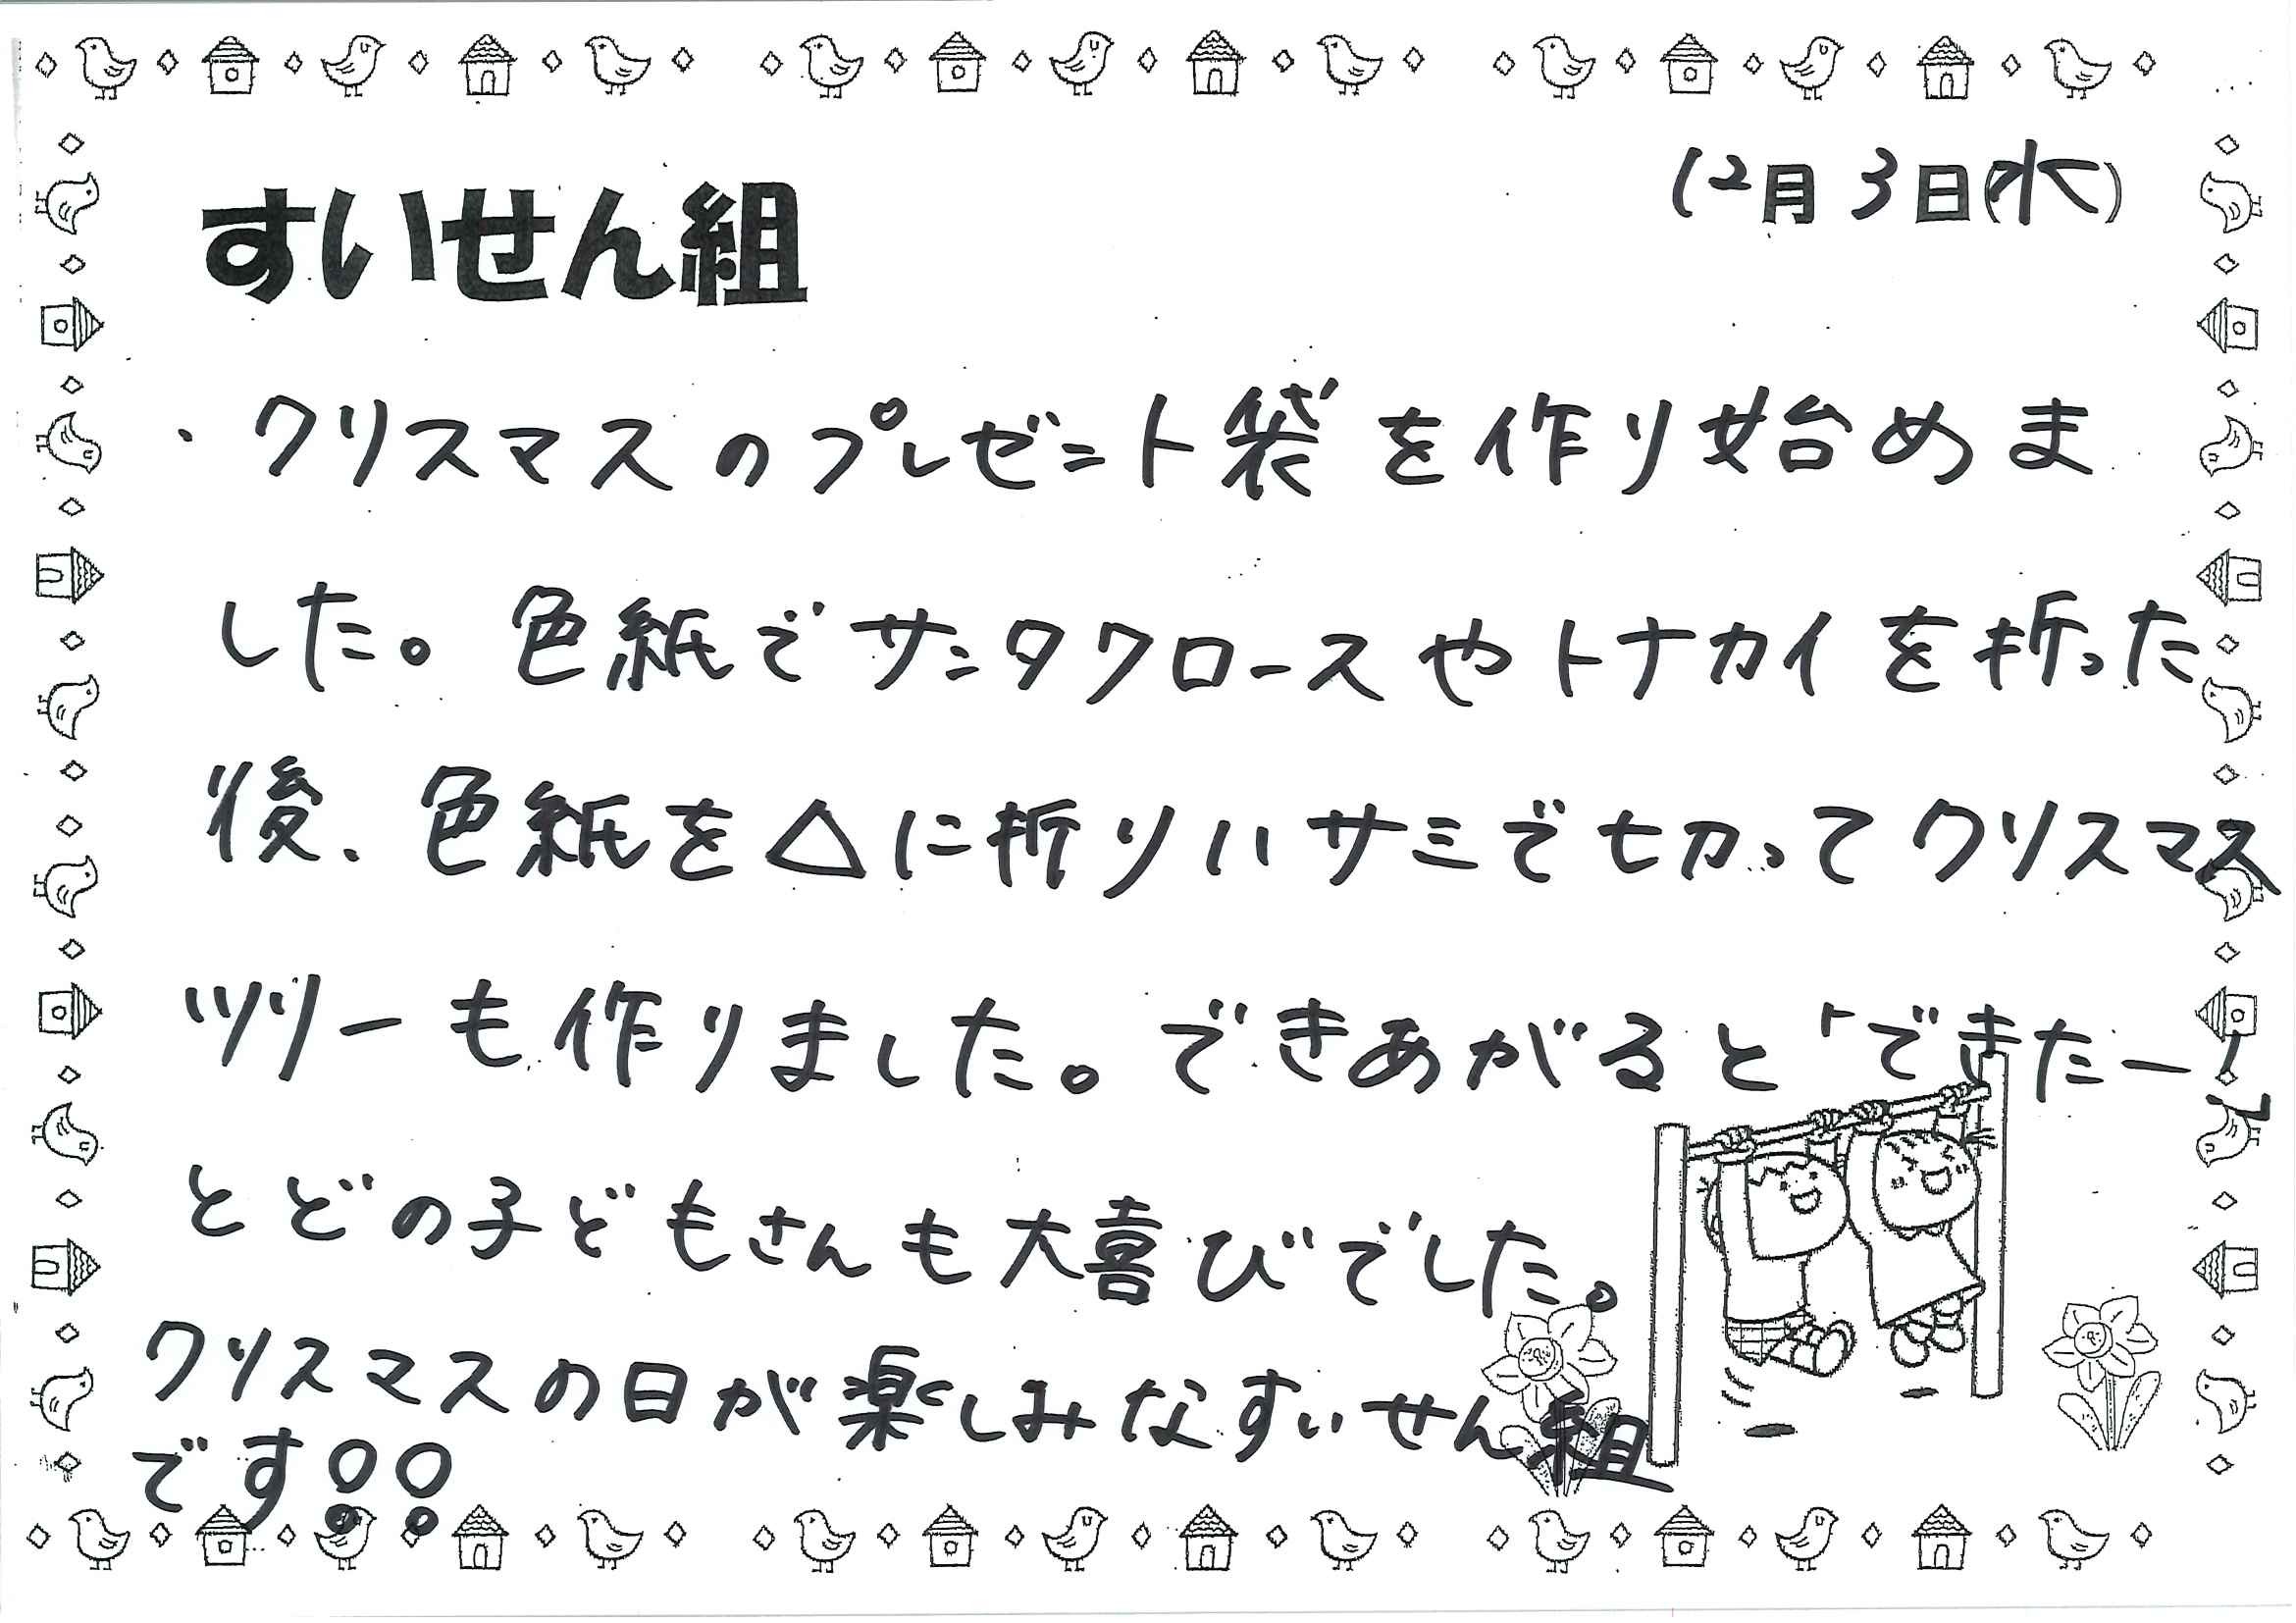 12月3日(水)
すいせん組
・クリスマスのプレゼント袋を作り始めま
した。色紙でサンタクロースやトナカイを折った
後、色紙を△に折りハサミで切ってクリスマス
ツリーも作りました。できあがると「できたー!」
とどの子どもさんも大喜びでした。
クリスマスの日が楽しみなすいせん組
です!!